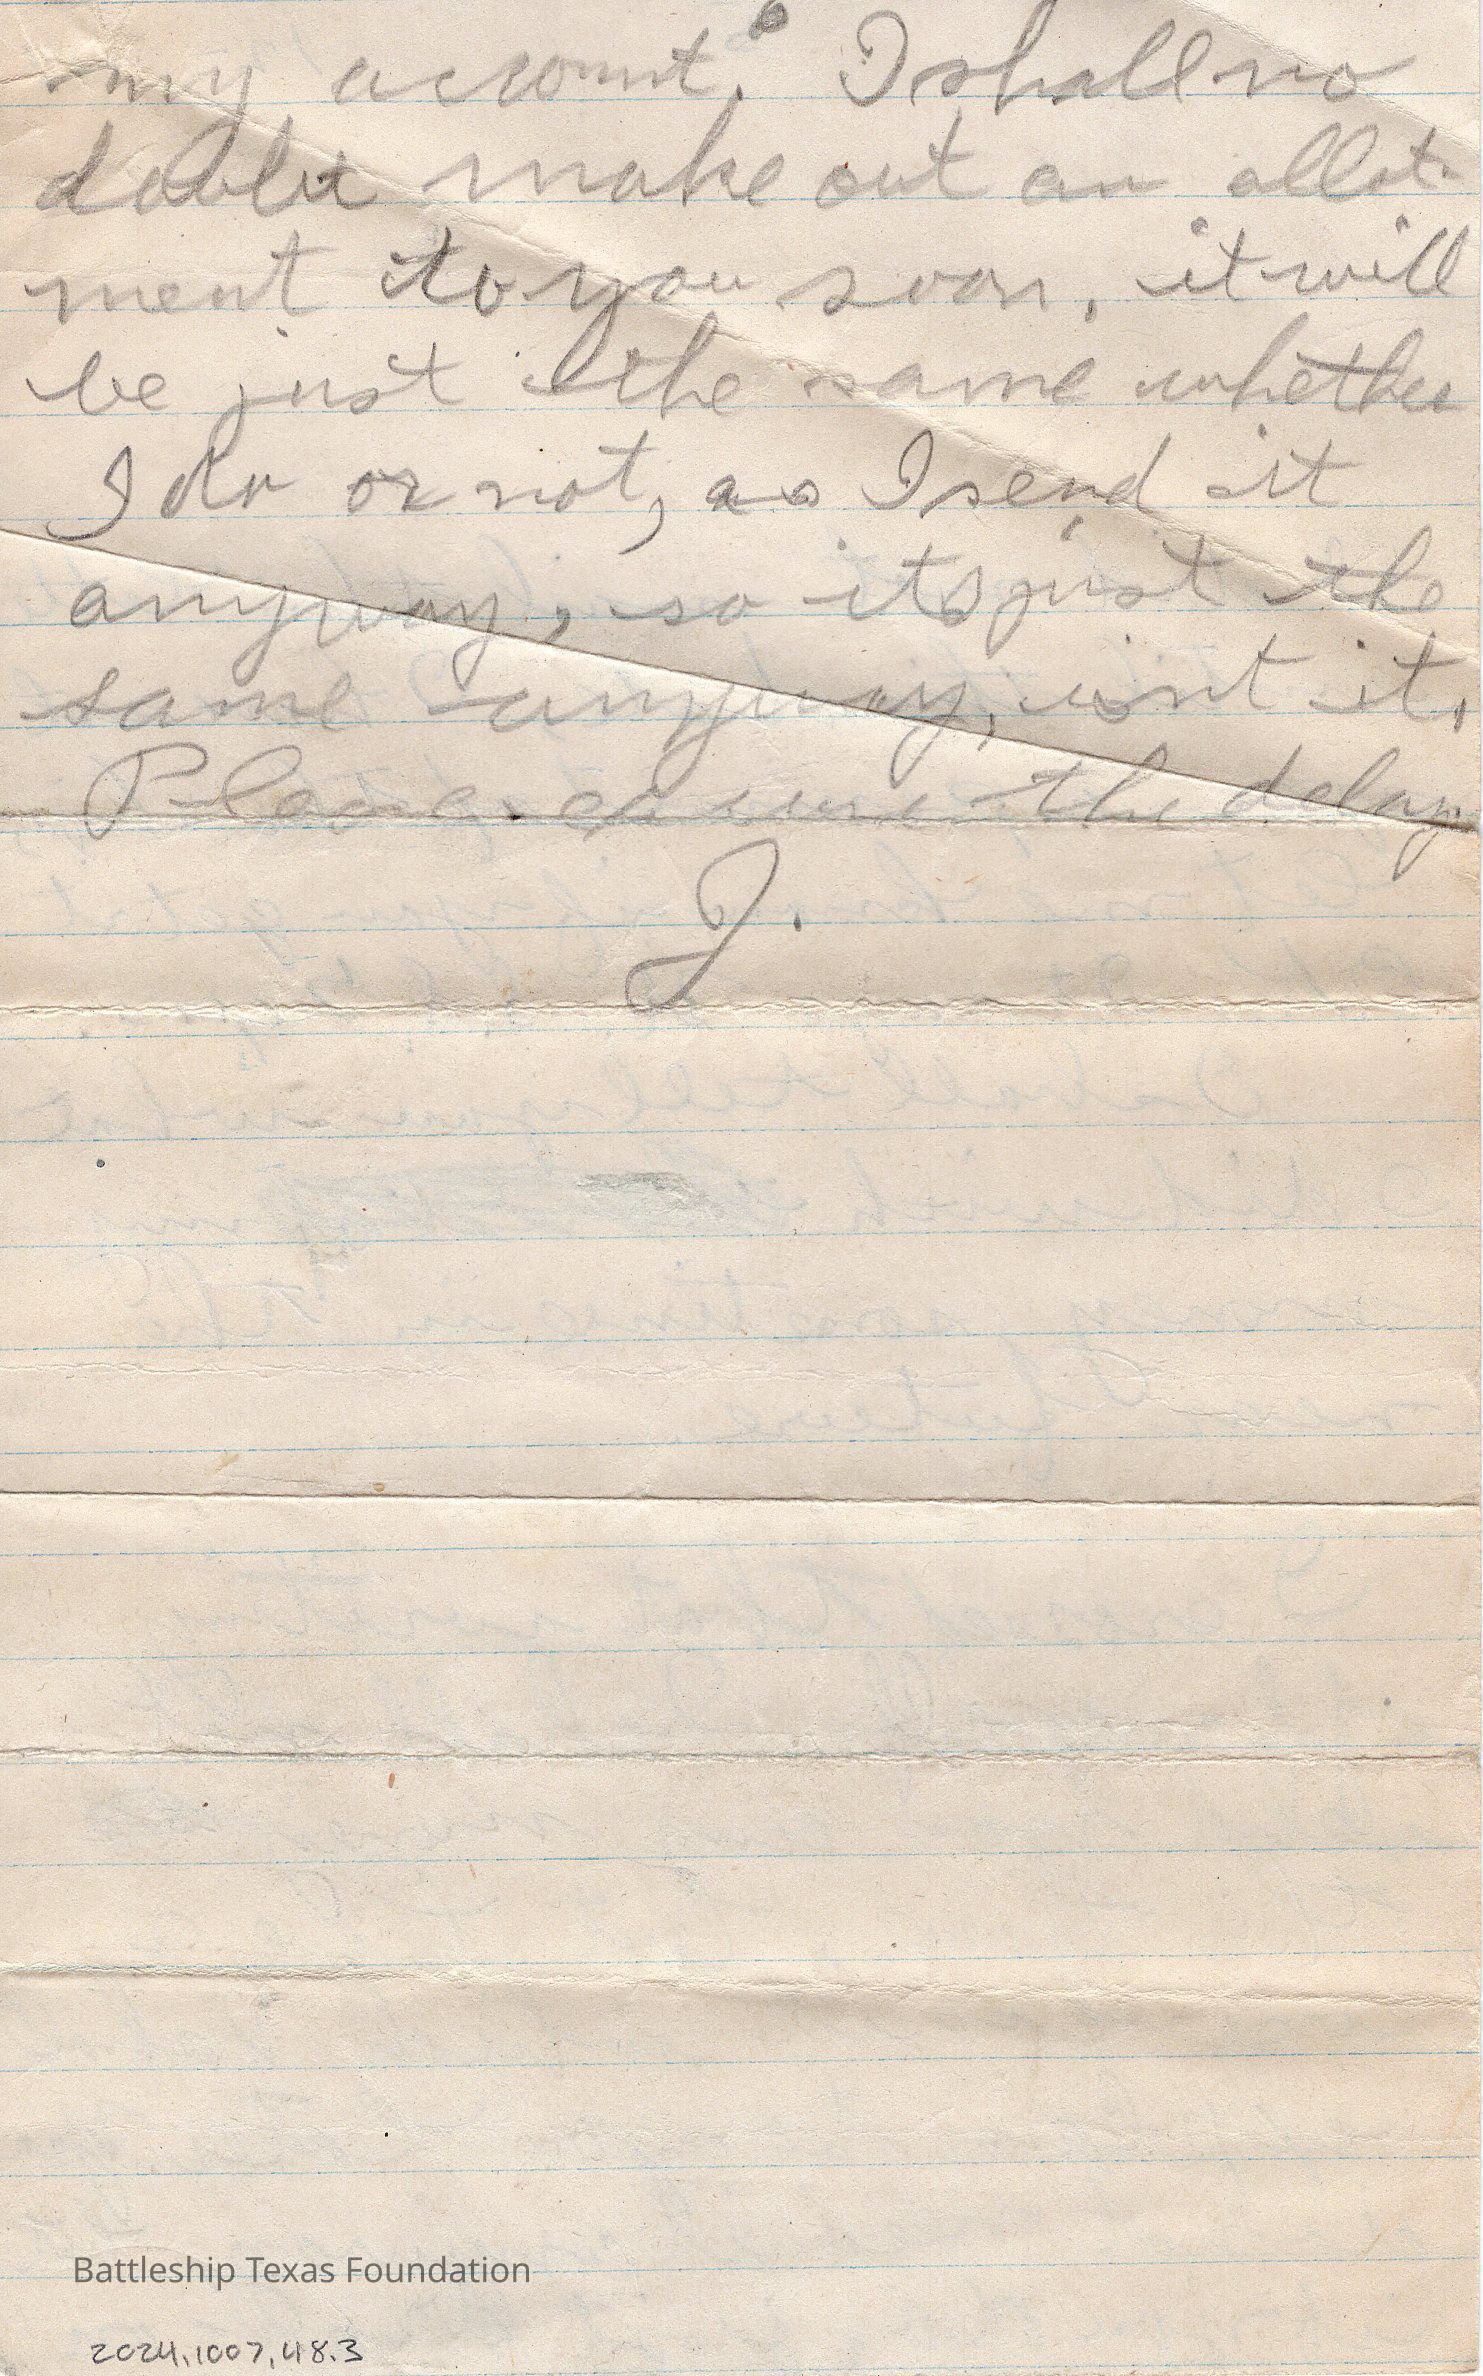 my account. I shall no
doubt make out an allot-
ment to you soon, it will
be just the same whether
I do or not, as I send it
anyway, so its just the
same anyway, isnt it,
Please excuse the delay.
J.
Battleship Texas Foundation
2024.1007.48.3